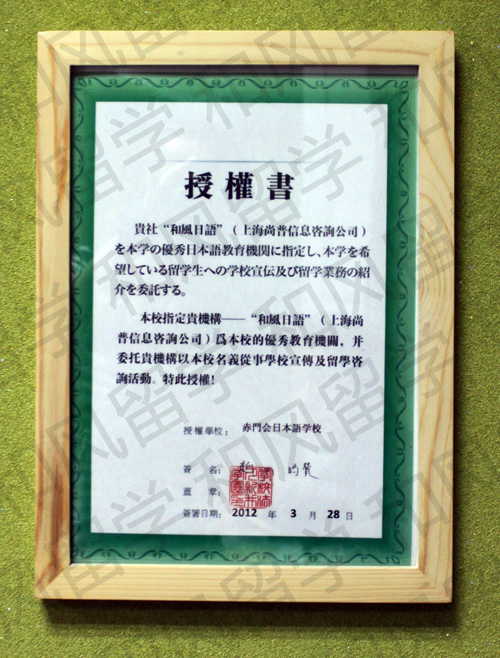 授權書
貴社“和風日語”（上海尚普信息咨詢公司）
を本学の優秀日本語教育機関に指定し、本学を希
望している留学生への学校宣伝及び留学業務の紹
介を委託する。
本校指定貴機構——“和風日語”（上海尚
普信息咨詢公司）爲本校的優秀教育機關，并
委托貴機構以本校名義從事學校宣傳及留學咨
詢活動。特此授權！
授權學校： 赤門会日本語学校
簽 名：
蓋 章：
簽署日期：2012 年 3 月 28 日
和风留学